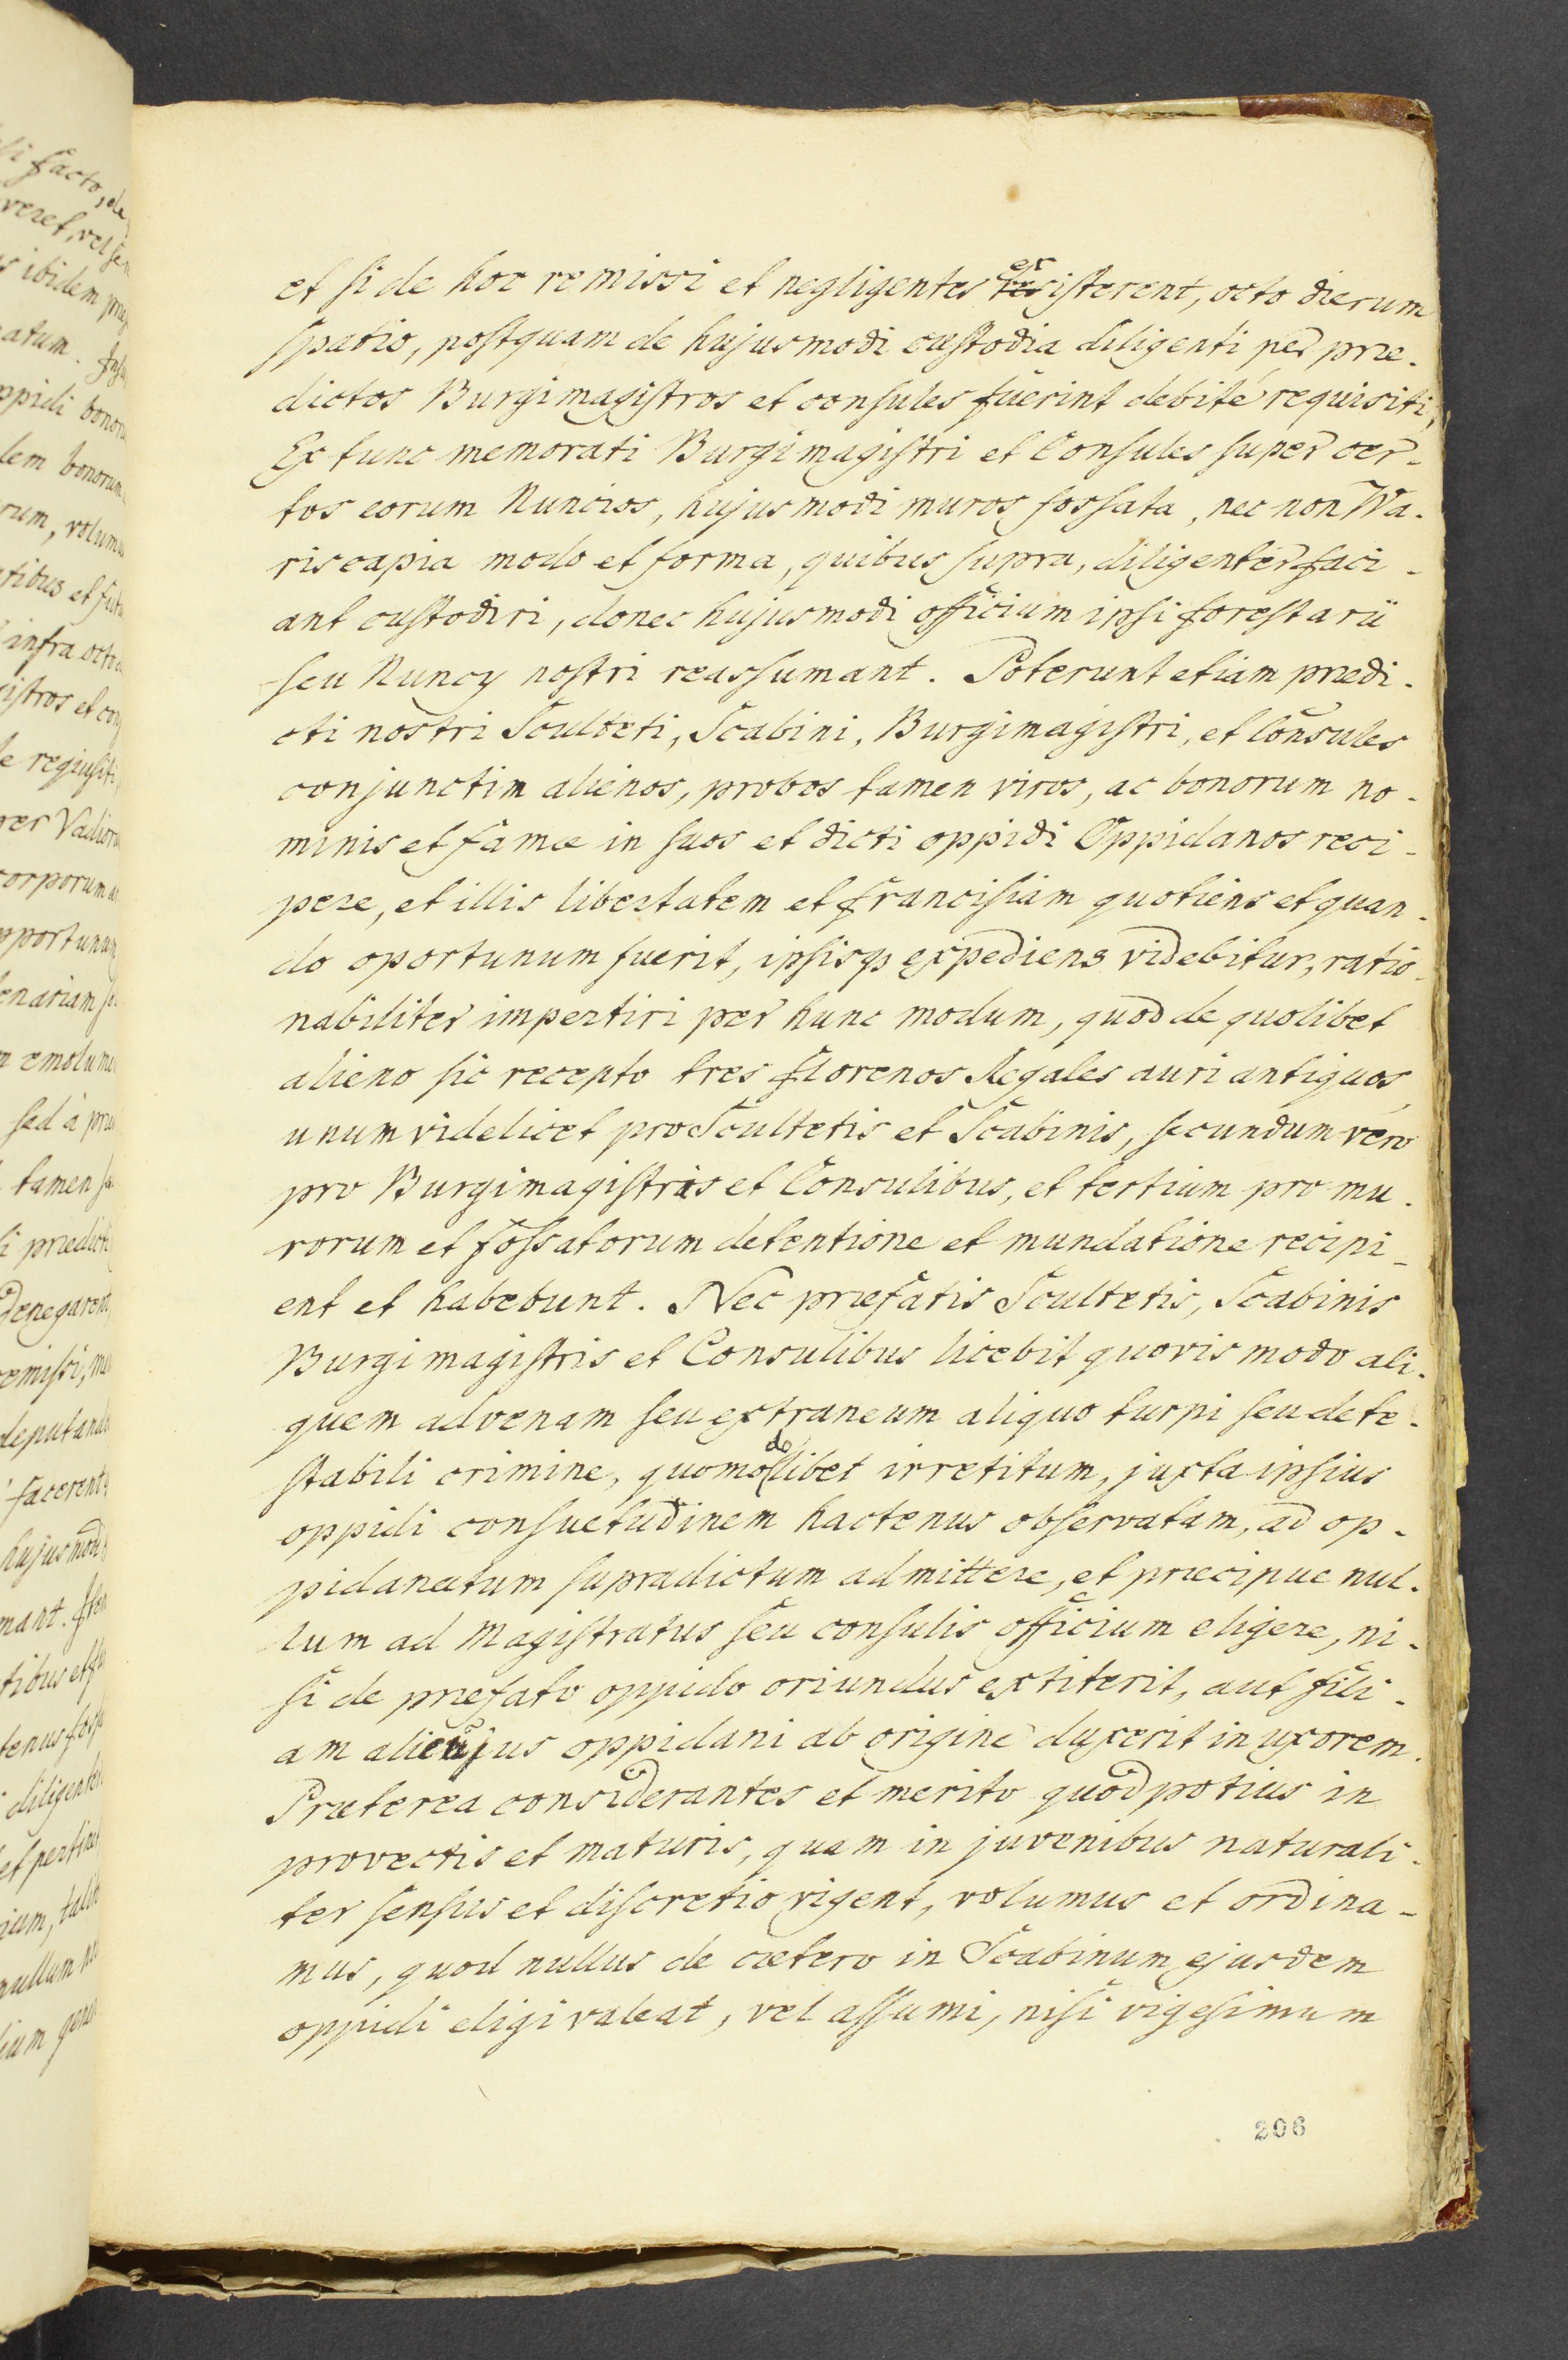 et si de hoc remissi et negligentes existerent, octo dierum
spatio, postquam de hujusmodi custodia diligenti per præ-
dictos Burgimagistros et consules fuerint debité requisiti,
Ex tunc memorati Burgimagistri et Consules super cer-
tos eorum Nuncios, hujusmodi muros fossata, nec non Wa-
riscapia modo et forma, quibus supra, diligenter faci-
ant custodiri, donec hujusmodi officium ipsi forestarii
seu Nuncy nostri reassumant. Poterunt etiam prædi-
cti nostri Sculteti, Scabini, Burgimagistri, et Consules
conjunctim alienos, probos tamen viros, ac bonorum no-
minis et famæ in suos et dicti oppidi Oppidanos reci-
pere, et illis libertatem et francisiam quotiens et quan-
do oportunum fuerit, ipsisq expediens videbitur, ratio-
nabiliter impertiri per hunc modum, quod de quolibet
alieno sic recepto tres florenos Regales auri antiquos,
unum videlicet pro Scultetis et Scabinis, secundum vero
pro Burgimagistris et Consulibus, et tertium pro mu-
rorum et fossatorum detentione et mundatione recipi-
ent et habebunt. Nec præfatis Scultetis, Scabinis
Burgimagistris et Consulibus licebit quovis modo ali-
quem advenam seu extraneum aliquo turpi seu dete-
stabili crimine, quomodolibet irretitum, juxta ipsius
oppidi consuetudinem hactenus observatam, ad op-
pidanatum supradictum admittere, et præcipue nul-
lum ad Magistratus seu consulis officium eligere, ni-
si de præfato oppido oriundus extiterit, aut fili-
am alicujus oppidani ab origine duxerit in uxorem.
Præterea considerantes et merito quod potius in
provectis et maturis, quam in juvenibus naturali-
ter sensus et discretio vigent, volumus et ordina-
mus, quod nullus de cætero in Scabinum ejusdem
oppidi eligi valeat, vel assumi, nisi vigesimum
206